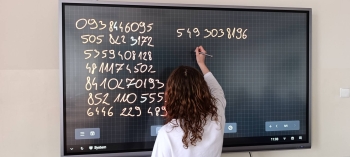 093 8446095
505 842 3172
5359408128
4811174502
8410270193
852 110 555
6446 229 489
549 3038196
System